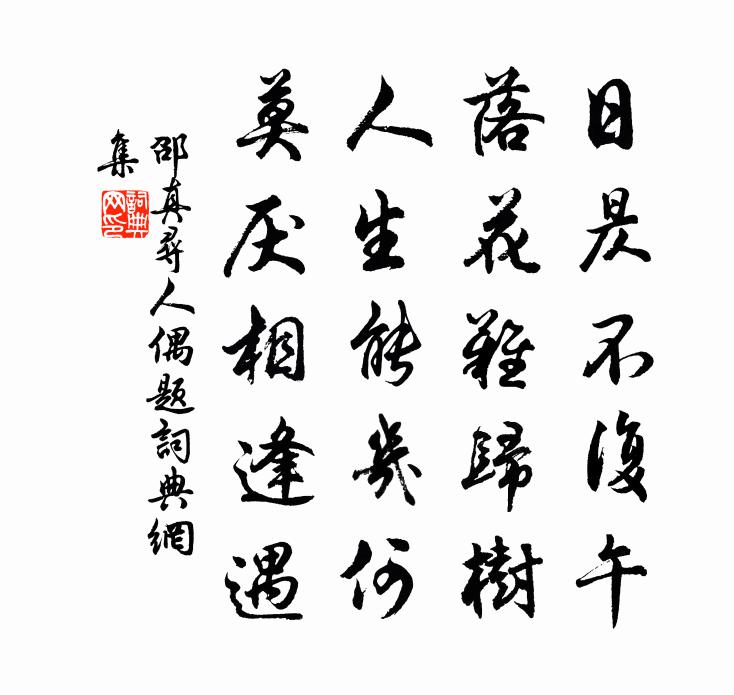 日昃不復午
落花難歸樹
人生能幾何
莫厌相逢遇
邵真尋人偶题詞典網
集
詞典
网印